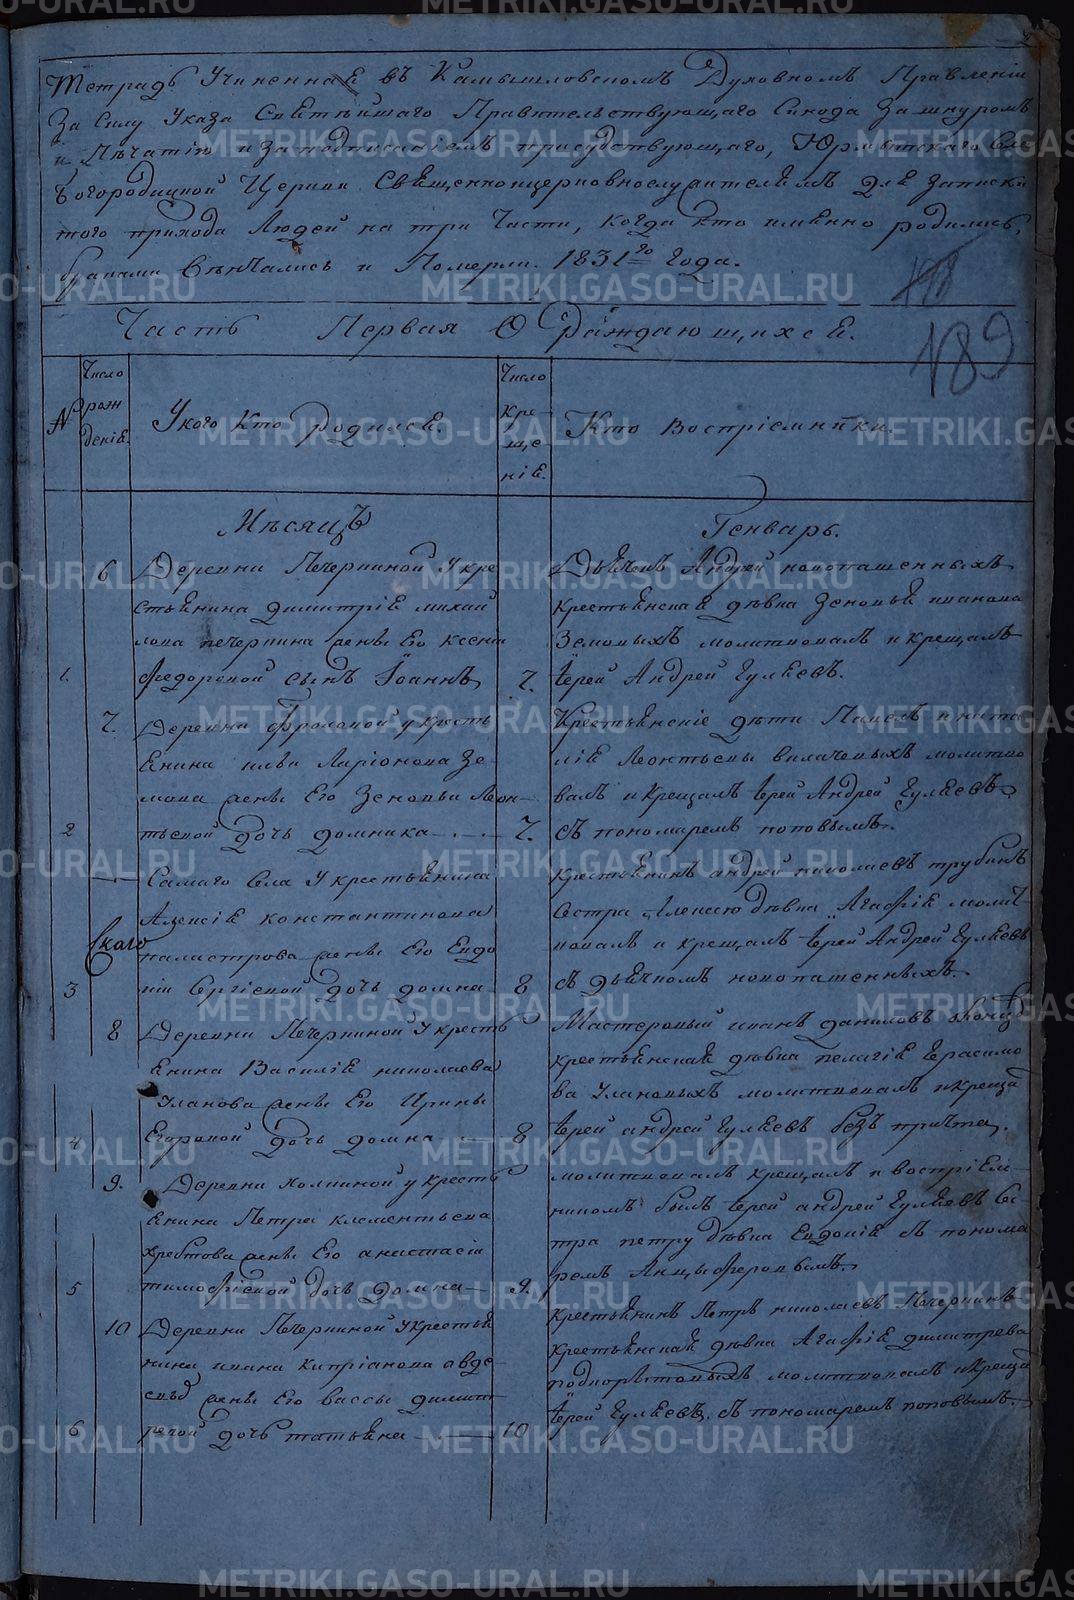 Тетрадь Учиненная въ Камышловскомъ Духовномъ Правленіи
За Силу Указа Святѣйшаго Правительствующаго Синода За шнуромъ
и Печатію и За подписаніемъ присудствующаго, Юрмытскаго Села
Богородицкой Церкви Священноицерковнослужителямъ для Записки
того прихода Людей на три Части, когда кто имянно родились,
браками Вѣнчались и Померли. 1831го Года.
189
Часть Первая О Раждающихся.
№
Число рождения.
У кого Кто родился.
Число Крещенія.
Кто Воспріемники.
Мѣсяцъ Генварь.
6 Деревни Печеркиной У кре
стьянина Димитрія михай
лова печеркина жены Его ксеніи
1. Федоровой сынъ Іоаннъ 7.
Дьячекъ Андрей новопашенныхъ
крестьянская дѣвка Зеновья иванова
Земовыхъ молитвовалъ и крещалъ
іерей Андрей Гуляевъ.
7. Деревни Фроловой у кресть
янина ильи Ларіонова Зе
мова жены Его Зеновьи Леон
2 тьевой дочь домника 7.
Крестьянскіе дѣти Павелъ и ната
лія Леонтьевы молитво
валъ и крещалъ іерей Андрей Гуляевъ
съ пономаремъ поповымъ.
Самаго Села У крестьянина
Алексія константинова
жены Его Евдо
3 кіи Сергіевой дочь домна 8
крестьянинъ андрей николаевъ трубинъ
Сестра Алексею дѣвка Агафія молит
вовалъ и крещалъ іерей Андрей Гуляевъ
съ дьячкомъ новопашенныхъ.
8 Деревни Печеркиной У кресть
янина Василія николаева
Уланова жены Его Ирины
4 Егоровой дочь домна 8
Мастеровый иванъ даниловъ
крестьянская дѣвка пелагія Герасимо
ва Улановыхъ молитвовалъ и креща
іерей андрей Гуляевъ безъ причта.
9. Деревни Холкиной у кресть
янина Петра клементьева
хребтова жены Его анастасіи
5 тимофіевой дочь домна 9.
молитвовалъ крещалъ и воспріем
никомъ былъ іерей андрей Гуляевъ Се
тра петру дѣвка Евдокія съ понома
ремъ Анцыферовымъ.
10 Деревни Печеркиной У крестья
нина ивана кипріанова авде
жены Его вассы димит
6 ревой дочь татьяна 10
крестьянинъ Петръ николаевъ Печеркинъ
крестьянская дѣвка Агафія димитрева
молитвовалъ и креща
іерей Гуляевъ. съ пономаремъ поповымъ.
METRIKI.GASO-URAL.RU